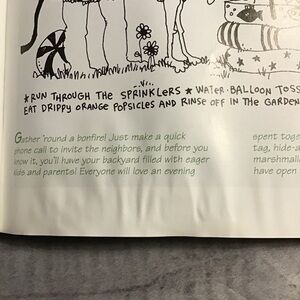 *RUN THROUGH THE SPRINKLERS * WATER BALLOON TOSS
EAT DRIPPY ORANGE POPSICLES AND RINSE OFF IN THE GARDEN
Gather 'round a bonfire! Just make a quick
phone call to invite the neighbors, and before you
know it, you'll have your backyard filled with eager
kids and parents! Everyone will love an evening
spent toge
tag, hide-a
marshmall
have open